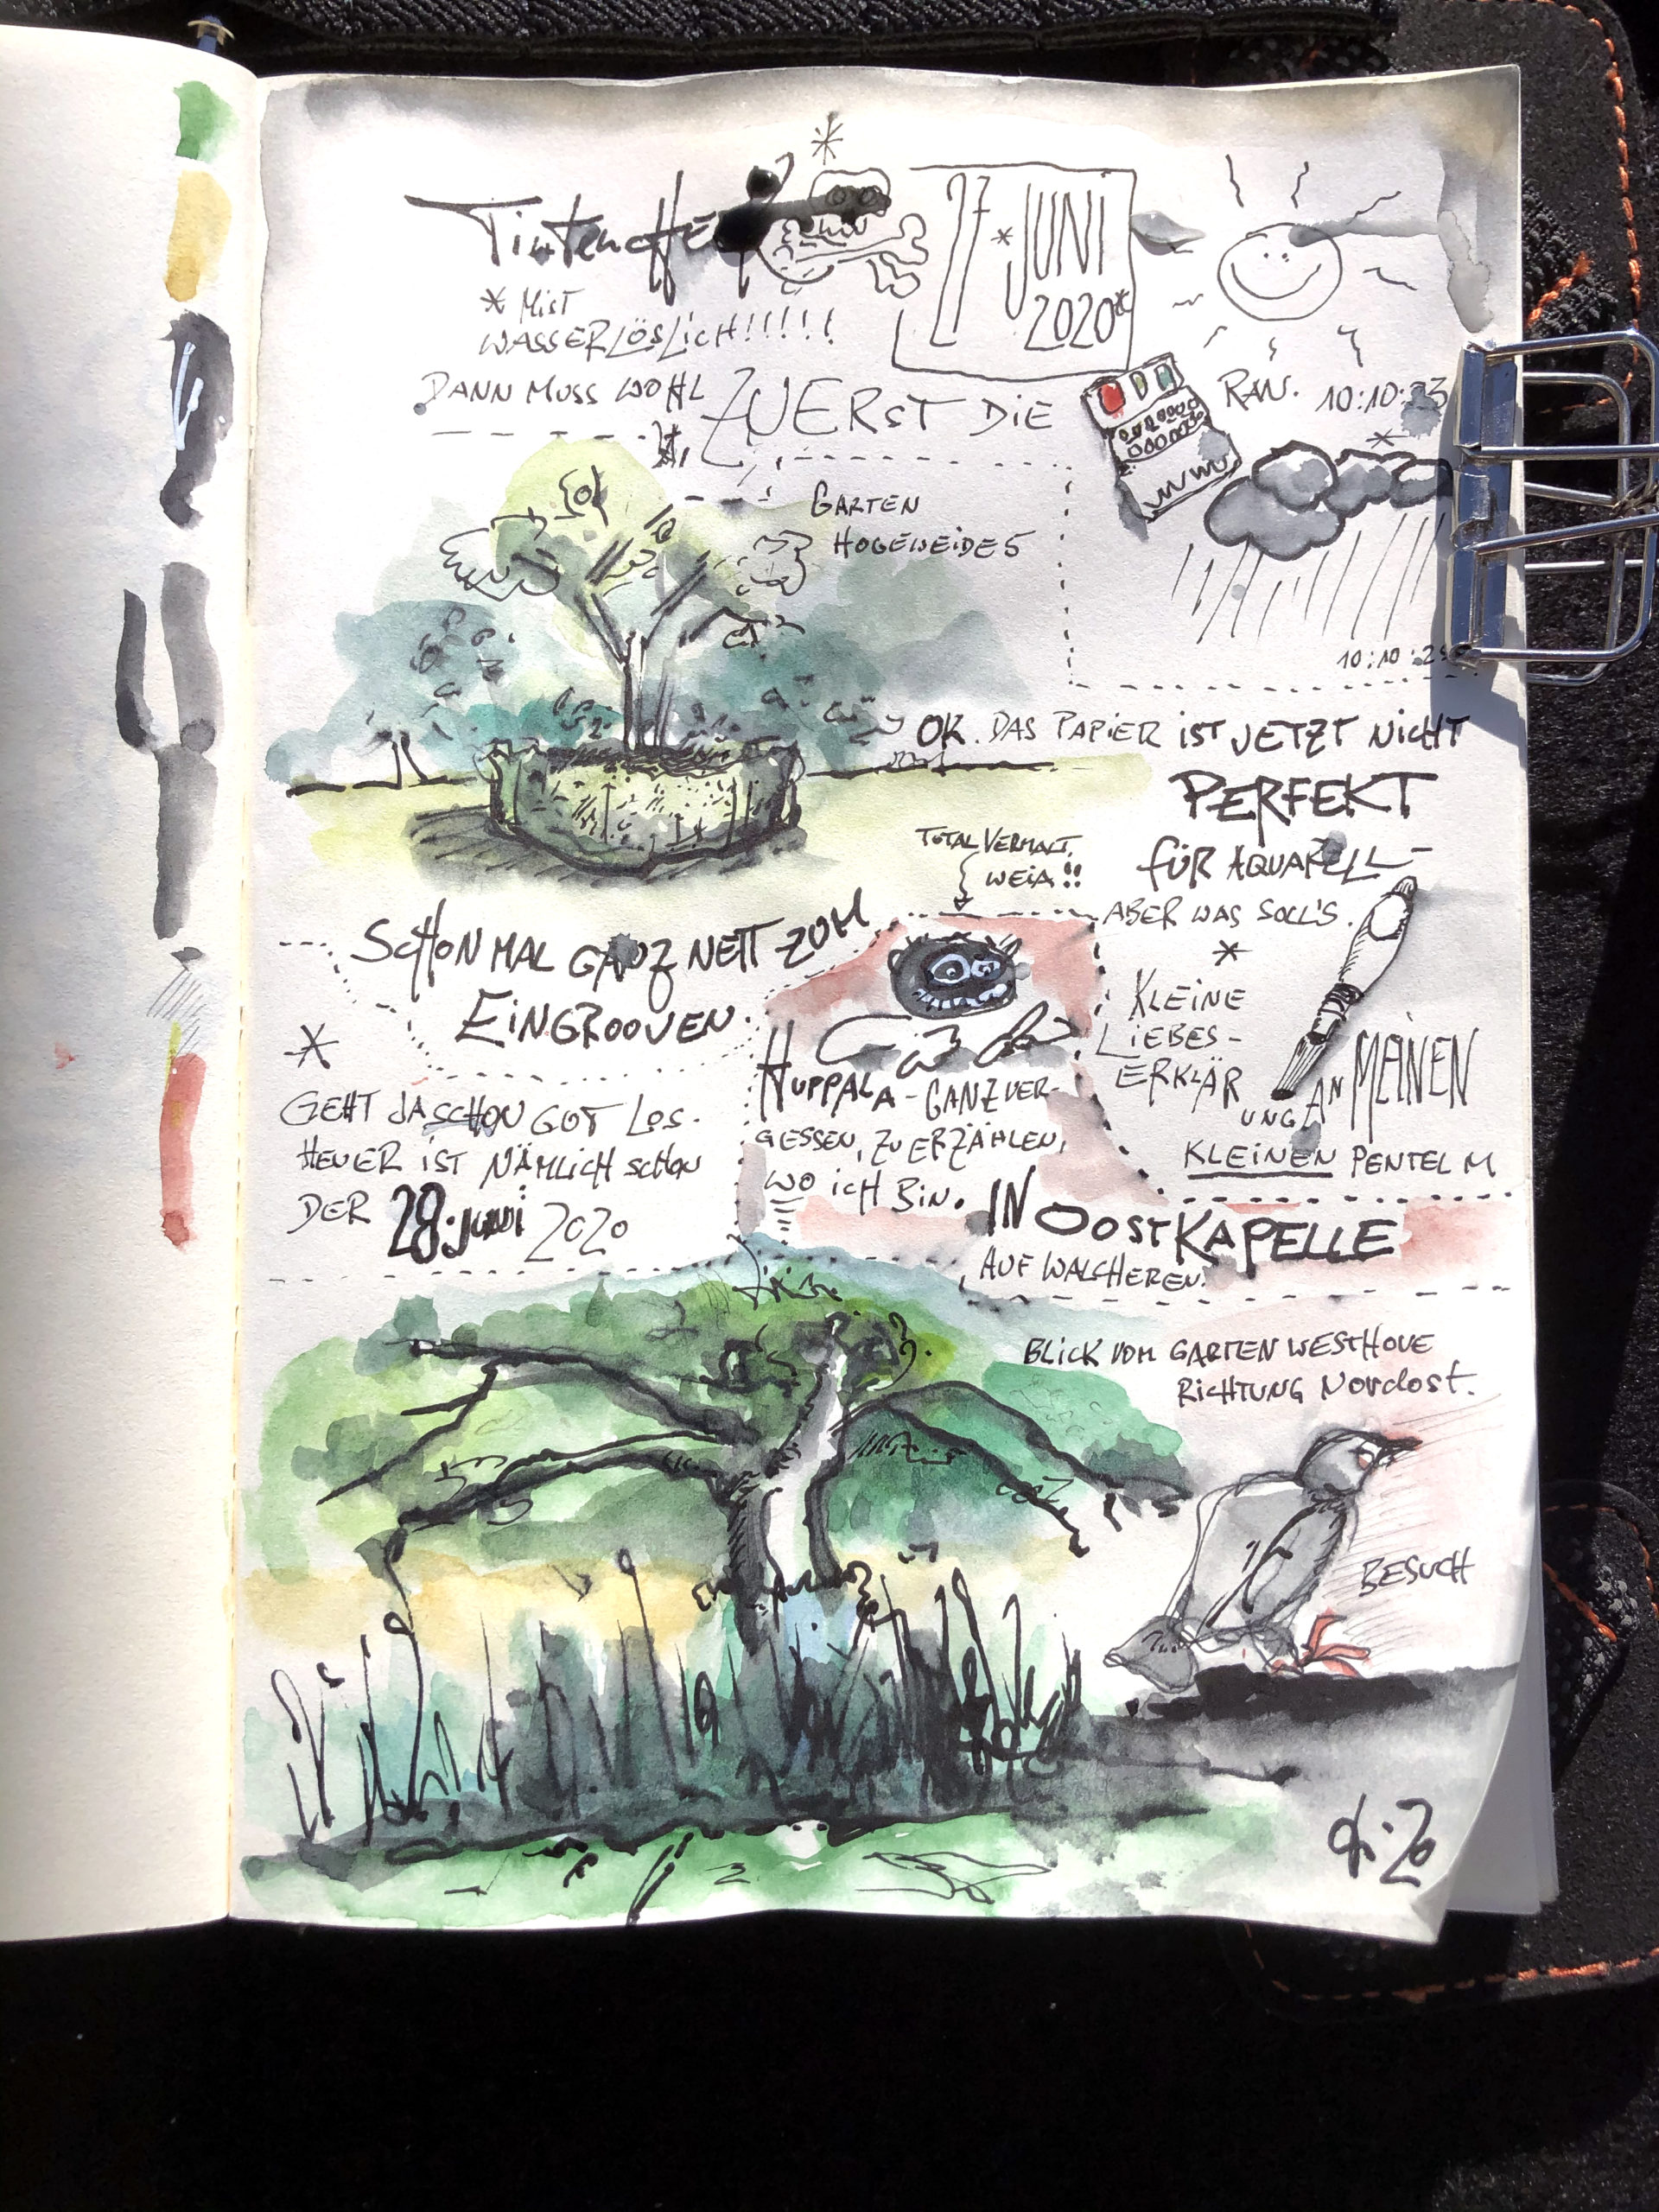 27 * JUNI
2020*
* MIST
WASSERLÖSLICH!!!!!
DANN MUSS WOHL ZUERST DIE
RAN.
GARTEN
HOGEWEIDE 5
OK. DAS PAPIER IST JETZT NICHT
PERFEKT
FÜR AQUARELL -
ABER WAS SOLL'S.
*
KLEINE
LIEBES-
ERKLÄR
UNG AN MEINEN
KLEINEN PENTEL M
TOTAL VERMALT,
WEIA!!
SCHON MAL GANZ NETT ZUM
EINGROOVEN.
*
GEHT JA SCHON GUT LOS.
HEUER IST NÄMLICH SCHON
DER 28. JUNI 2020
HUPPALA - GANZ VER-
GESSEN, ZU ERZÄHLEN,
WO ICH BIN. IN OOSTKAPELLE
AUF WALCHEREN.
BLICK VOM GARTEN WESTHOVE
RICHTUNG Nordost.
BESUCH